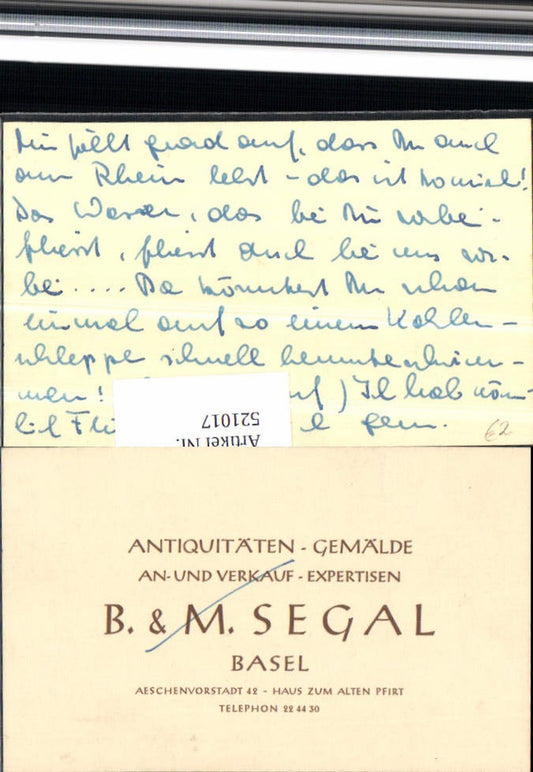 Mir fällt grad auf, dass Du auch
am Rhein lebst - das ist komisch!
Das Wasser, das bei Dir vorbei-
fliesst, fliesst auch bei uns vor-
bei .... Da könntest Du schon
einmal auf so einem Kohlen-
schlepper schnell herunterschwim-
men! ) Ich hab näm-
lich gern.
62
Artikel Nr.
521017
ANTIQUITÄTEN - GEMÄLDE
AN- UND VERKAUF - EXPERTISEN
B. & M. SEGAL
BASEL
AESCHENVORSTADT 42 - HAUS ZUM ALTEN PFIRT
TELEPHON 22 44 30